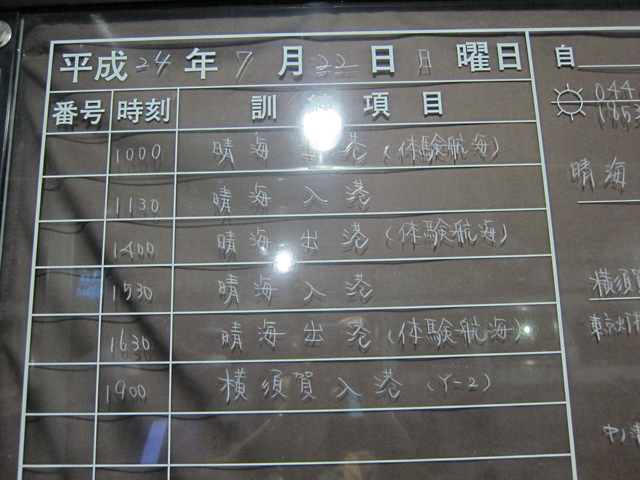 平成24年7月22日日曜日
番号 時刻 訓練項目
1000 晴海出港(体験航海)
1130 晴海入港
1400 晴海出港(体験航海)
1530 晴海入港
1630 晴海出港(体験航海)
1900 横須賀入港(Y-2)
自
044
185
晴海
横須
東京